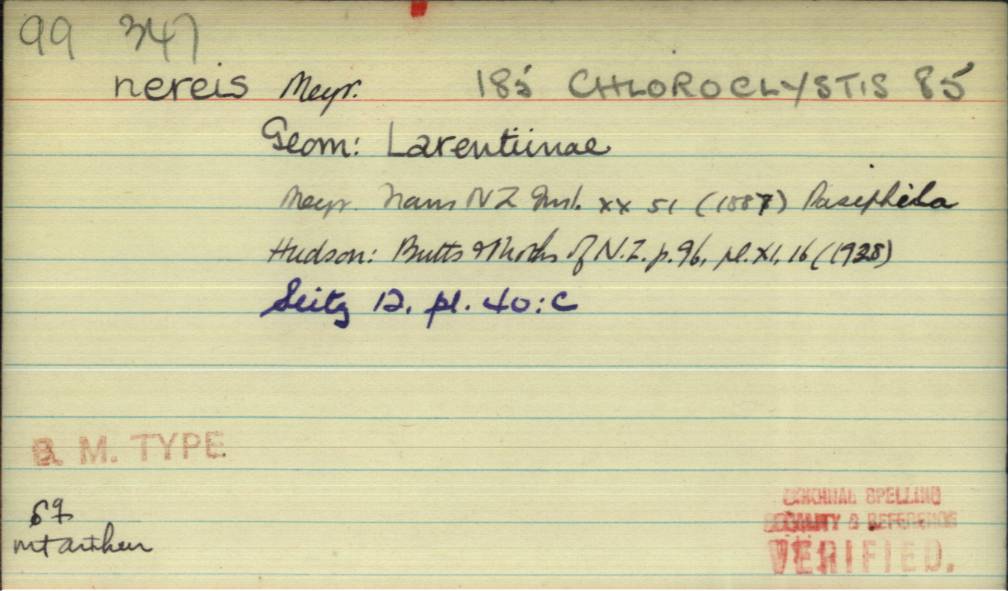 99 347
nereis Meyr. 185 CHLOROCLYSTIS 85
Geom: Larentiinae
Meyr. Trans NZ Inst. xx 51 (1887) Pasiphila
Hudson: Butts & Moths of N.Z. p.96, pl.XI, 16 (1928)
Seitz 12. pl. 40:C
B. M. TYPE
mt arthur
ORIGINAL SPELLING
LOCALITY & REFERENCE
VERIFIED.